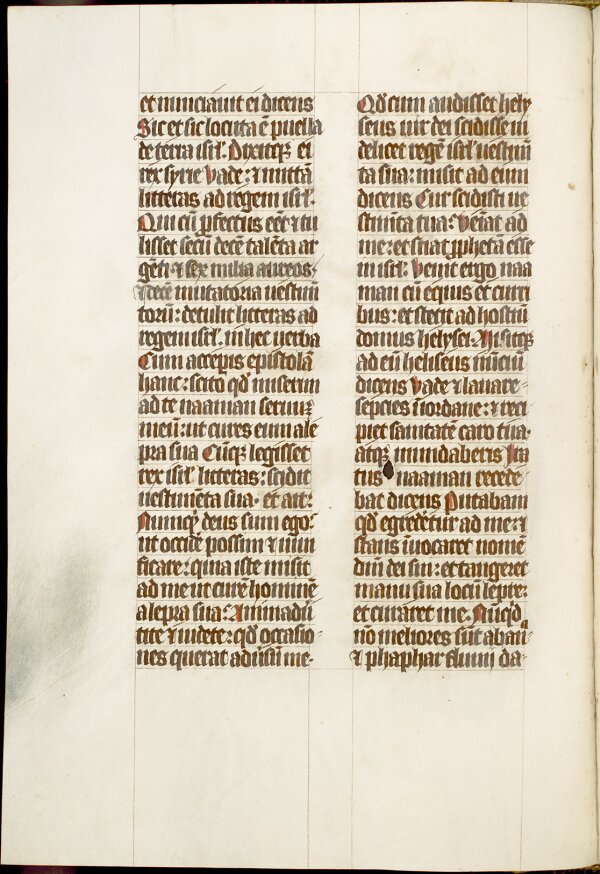 et nunciavit ei dicens
Sic et sic locuta ē puella
de terra isrl̄. Dixitqꝫ ei
rex syrie Vade: ⁊ mittā
litteras ad regem isrl̄.
Qui cū ꝓfectus eēt ⁊ tu
lisset secū decē talēta ar
gēti ⁊ sex milia aureos·
⁊ decē mutatoria vestim̄
torū: detulit litteras ad
regem isrl̄. in hec verba
Cum acceꝑis epistolā
hanc: scito qd̄ miserim
ad te naaman servuꝫ
meū: ut cures eum a le
pra sua Cūqꝫ legisset
rex isrl̄ litteras: scidit
vestimēta sua· et ait:
Numqꝫ deus sum ego:
ut occidē possim ⁊ vivi
ficare: quia iste misit
ad me ut curē hominē
a lepra sua: Animadv̄
tite ⁊ videte: qd̄ occasio
nes querat adv̄sū me·
Qd̄ cum audisset hely
seus vir dei scidisse vi
delicet regē isrl̄ vestim̄
ta sua: misit ad eum
dicens Cur scidisti ve
stim̄ta tua: Veīat ad
me: et sciat ꝓphetā esse
in isrl̄: Venit ergo naa
man cū equis et curri
bus: et stetit ad hostiū
domus helysei. Misitqꝫ
ad eū heliseus nūciū
dicens Vade ⁊ lavare
sepcies ī iordane: ⁊ reci
piet sanitatē caro tua·
atqꝫ mundaberis Ira
tus naaman recede
bat dicens Putabam
qd̄ egrederetur ad me: ⁊
stans īvocaret nomē
dnī dei sui: et tangeret
manu sua locū lepre:
et curaret me. Nūqd̄
nō meliores sūt abana
⁊ pharphar fluvii da